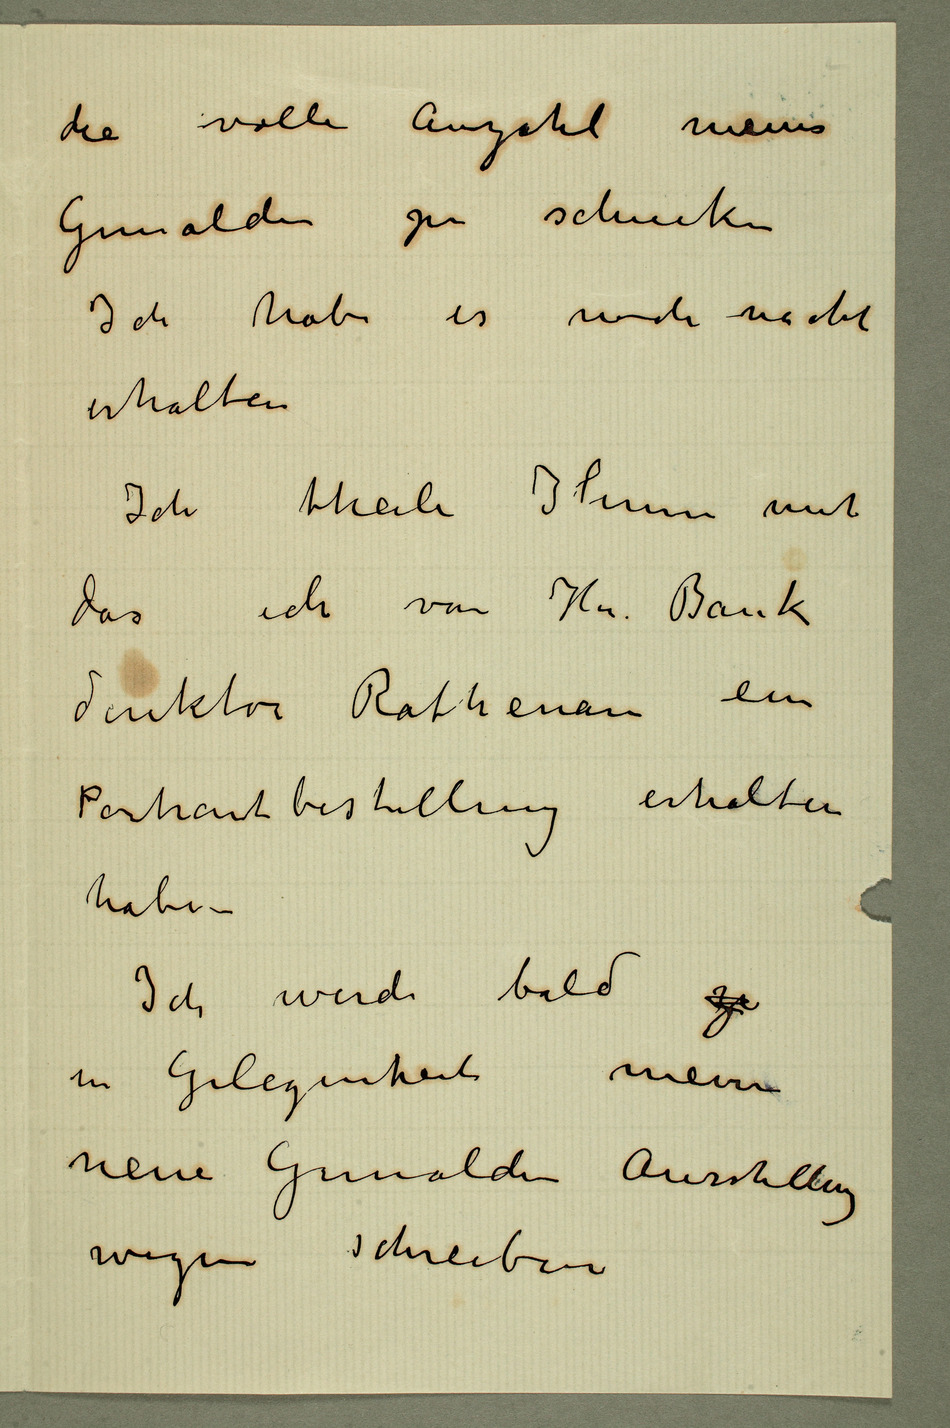 die volle Anzahl meine
Gemälden zu schicken
Ich habe es noch nicht
erhalten
Ich theile Ihnen mit
das ich von Hn. Bank
direktor Rathenau ein
Portraitbestellung erhalten
haben
Ich werde bald zu
in Gelegenheit meine
neue Gemälden Ausstellung
wegen schreiben